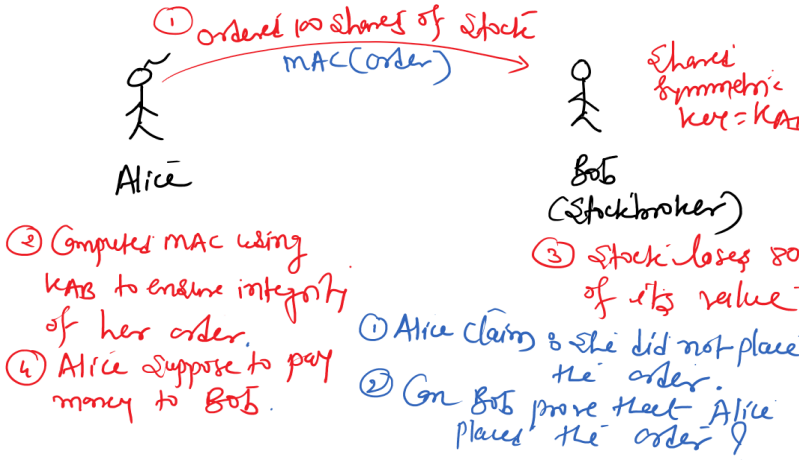 ① Ordered 100 Shares of Stock
MAC(order)
Shared
Symmetric
Key = KAB
Alice
Bob
(Stockbroker)
② Computed MAC using
KAB to ensure integrity
of her order.
③ Stock loses 80
of its value
④ Alice suppose to pay
money to Bob.
① Alice claims she did not place
the order.
② Can Bob prove that Alice
placed the order ?